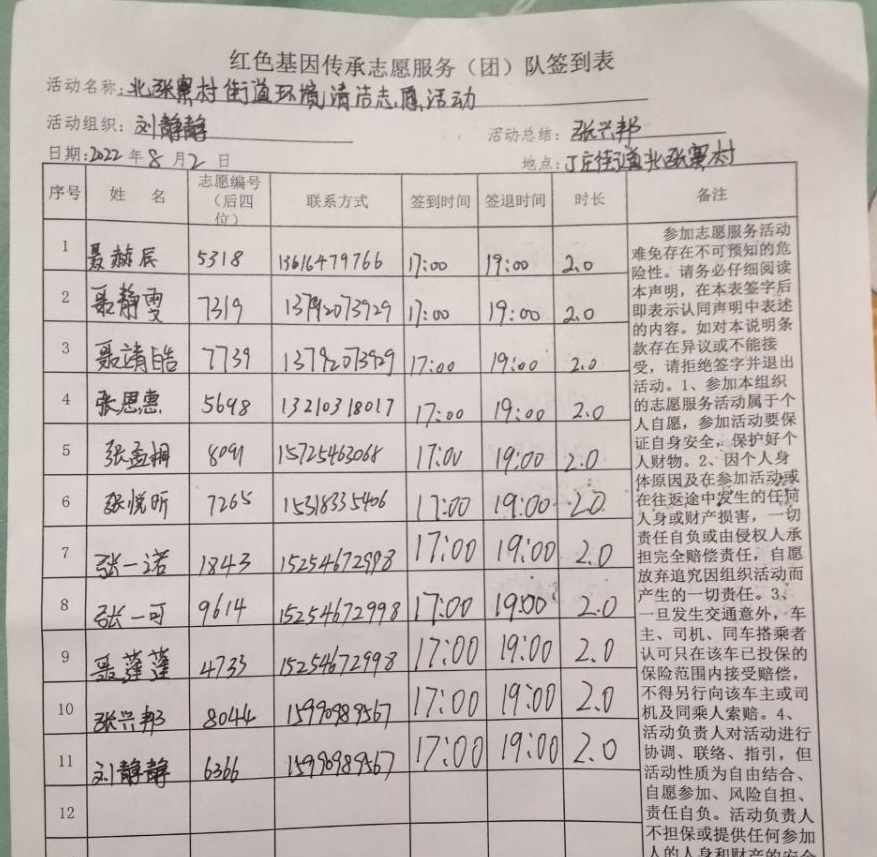 红色基因传承志愿服务（团）队签到表
活动名称：北张寨村街道环境清洁志愿活动
活动组织：刘静静 活动总结：张兴邦
日期：2022年8月2日 地点：丁庄街道北张寨村
序号 姓 名 志愿编号（后四位） 联系方式 签到时间 签退时间 时长 备注
1 聂赫辰 5318 13616479766 17:00 19:00 2.0
2 聂静雯 7319 13792073929 17:00 19:00 2.0
3 聂靖皓 7739 13792073929 17:00 19:00 2.0
4 张思惠 5698 13210318017 17:00 19:00 2.0
5 张孟桐 8091 15725463068 17:00 19:00 2.0
6 张悦昕 7265 15318335406 17:00 19:00 2.0
7 张一诺 1843 15254672998 17:00 19:00 2.0
8 张一可 9614 15254672998 17:00 19:00 2.0
9 聂蓬蓬 4733 15254672998 17:00 19:00 2.0
10 张兴邦 8044 15990989567 17:00 19:00 2.0
11 刘静静 6366 15990989567 17:00 19:00 2.0
12
参加志愿服务活动
难免存在不可预知的危
险性。请务必仔细阅读
本声明，在本表签字后
即表示认同声明中表述
的内容。如对本说明条
款存在异议或不能接
受，请拒绝签字并退出
活动。1、参加本组织
的志愿服务活动属于个
人自愿，参加活动要保
证自身安全，保护好个
人财物。2、因个人身
体原因及在参加活动或
在往返途中发生的任何
人身或财产损害，一切
责任自负或由侵权人承
担完全赔偿责任，自愿
放弃追究因组织活动而
产生的一切责任。3、
一旦发生交通意外，车
主、司机、同车搭乘者
认可只在该车已投保的
保险范围内接受赔偿，
不得另行向该车主或司
机及同乘人索赔。4、
活动负责人对活动进行
协调、联络、指引，但
活动性质为自由结合、
自愿参加、风险自担、
责任自负。活动负责人
不担保或提供任何参加
人的人身和财产的安全